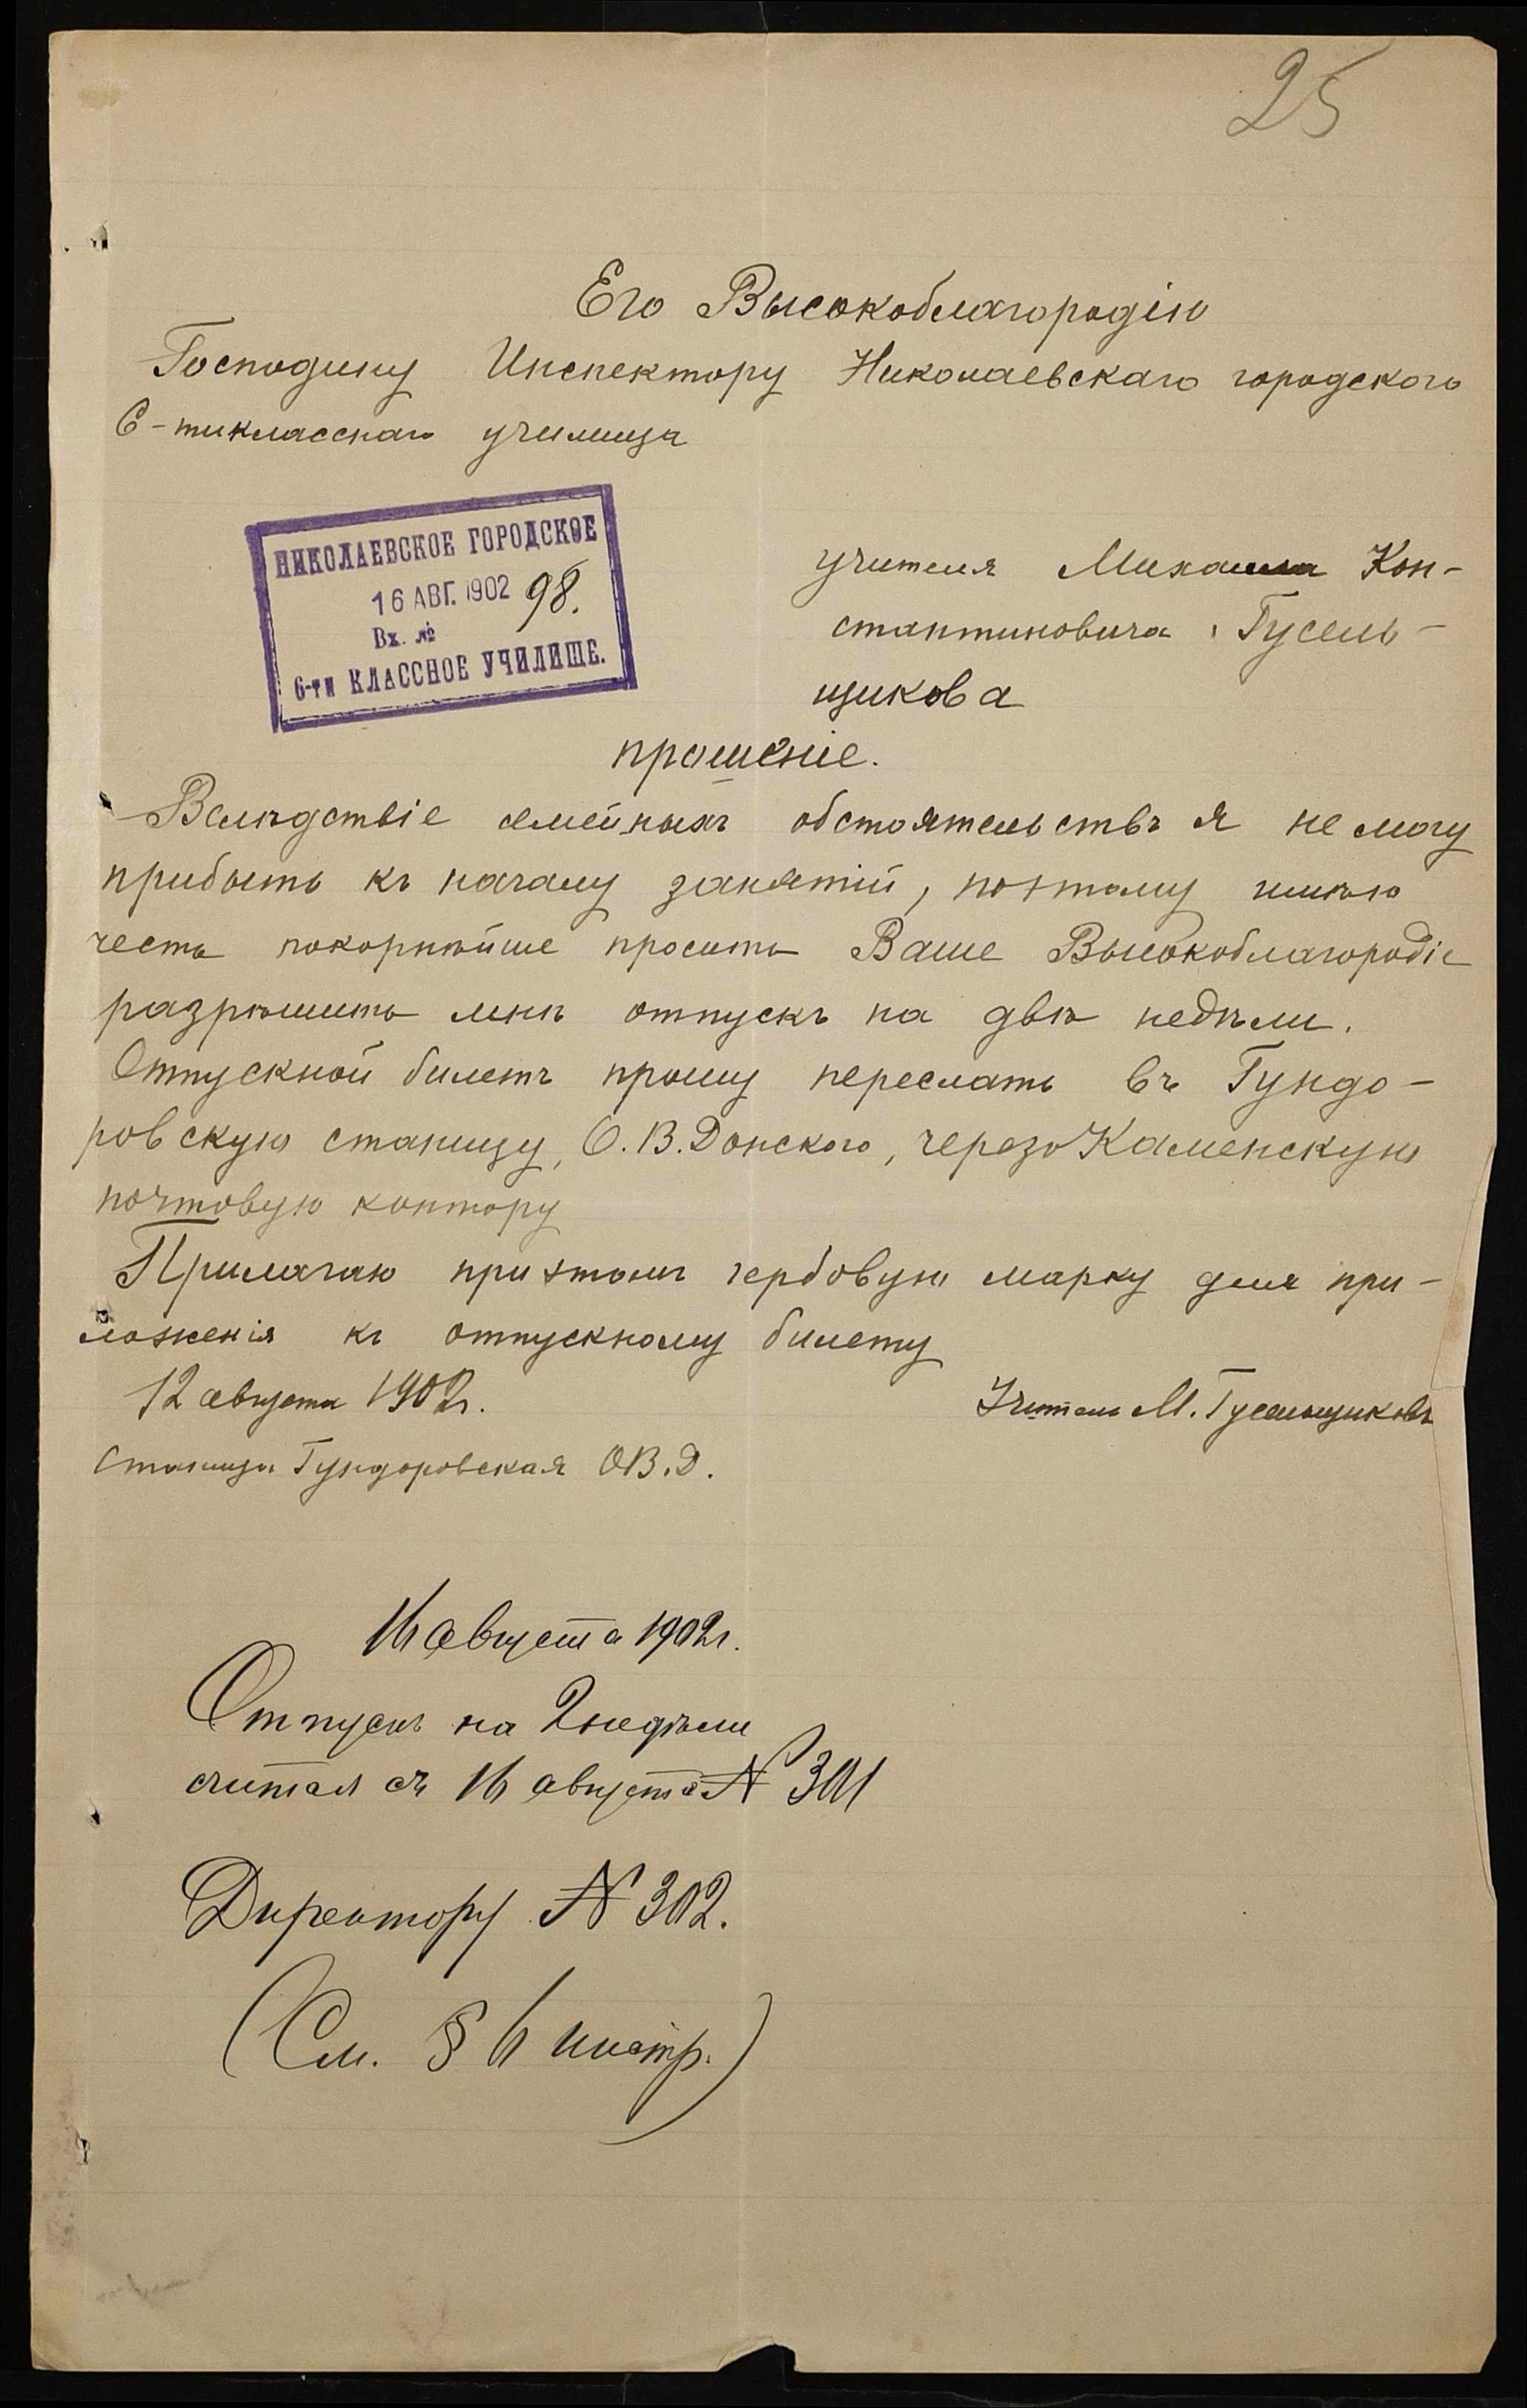 25
Его Высокоблагородію
Господину Инспектору Николаевскаго городского
6-тикласснаго училища
НИКОЛАЕВСКОЕ ГОРОДСКОЕ
16 АВГ. 1902 98.
Вх. №
6-ти КЛАССНОЕ УЧИЛИЩЕ.
учителя Михаила Кон-
стантиновича Гусель-
щикова
прошеніе.
Вслѣдствіе семейныхъ обстоятельствъ я не могу
прибыть къ началу занятій, поэтому имѣю
честь покорнѣйше просить Ваше Высокоблагородіе
разрѣшить мнѣ отпускъ на двѣ недѣли.
Отпускной билетъ прошу переслать въ Гундо-
ровскую станицу, О. В. Донского, черезъ Каменскую
почтовую контору
Прилагаю при этомъ гербовую марку для при-
ложенія къ отпускному билету
12 августа 1902 г.
Учитель М. Гусельщиковъ
Станица Гундоровская О.В.Д.
16 августа 1902 г.
Отпускъ на 2 недѣли
считая съ 16 августа № 301
Директору № 302.
(См. § 6 инстр.)